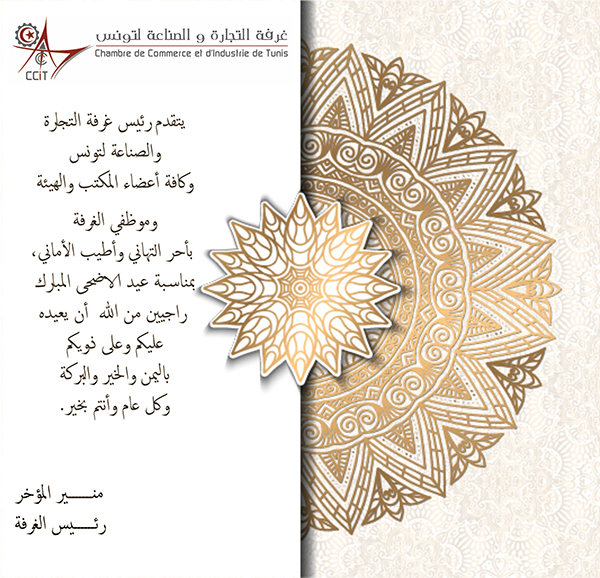 غرفة التجارة و الصناعة لتونس
Chambre de Commerce et d'Industrie de Tunis
CCIT
يتقدم رئيس غرفة التجارة
والصناعة لتونس
وكافة أعضاء المكتب والهيئة
وموظفي الغرفة
بأحر التهاني وأطيب الأماني،
بمناسبة عيد الاضحى المبارك
راجيين من الله أن يعيده
عليكم وعلى ذويكم
باليمن والخير والبركة
وكل عام وأنتم بخير.
منـــير المؤخر
رئـــيس الغرفة